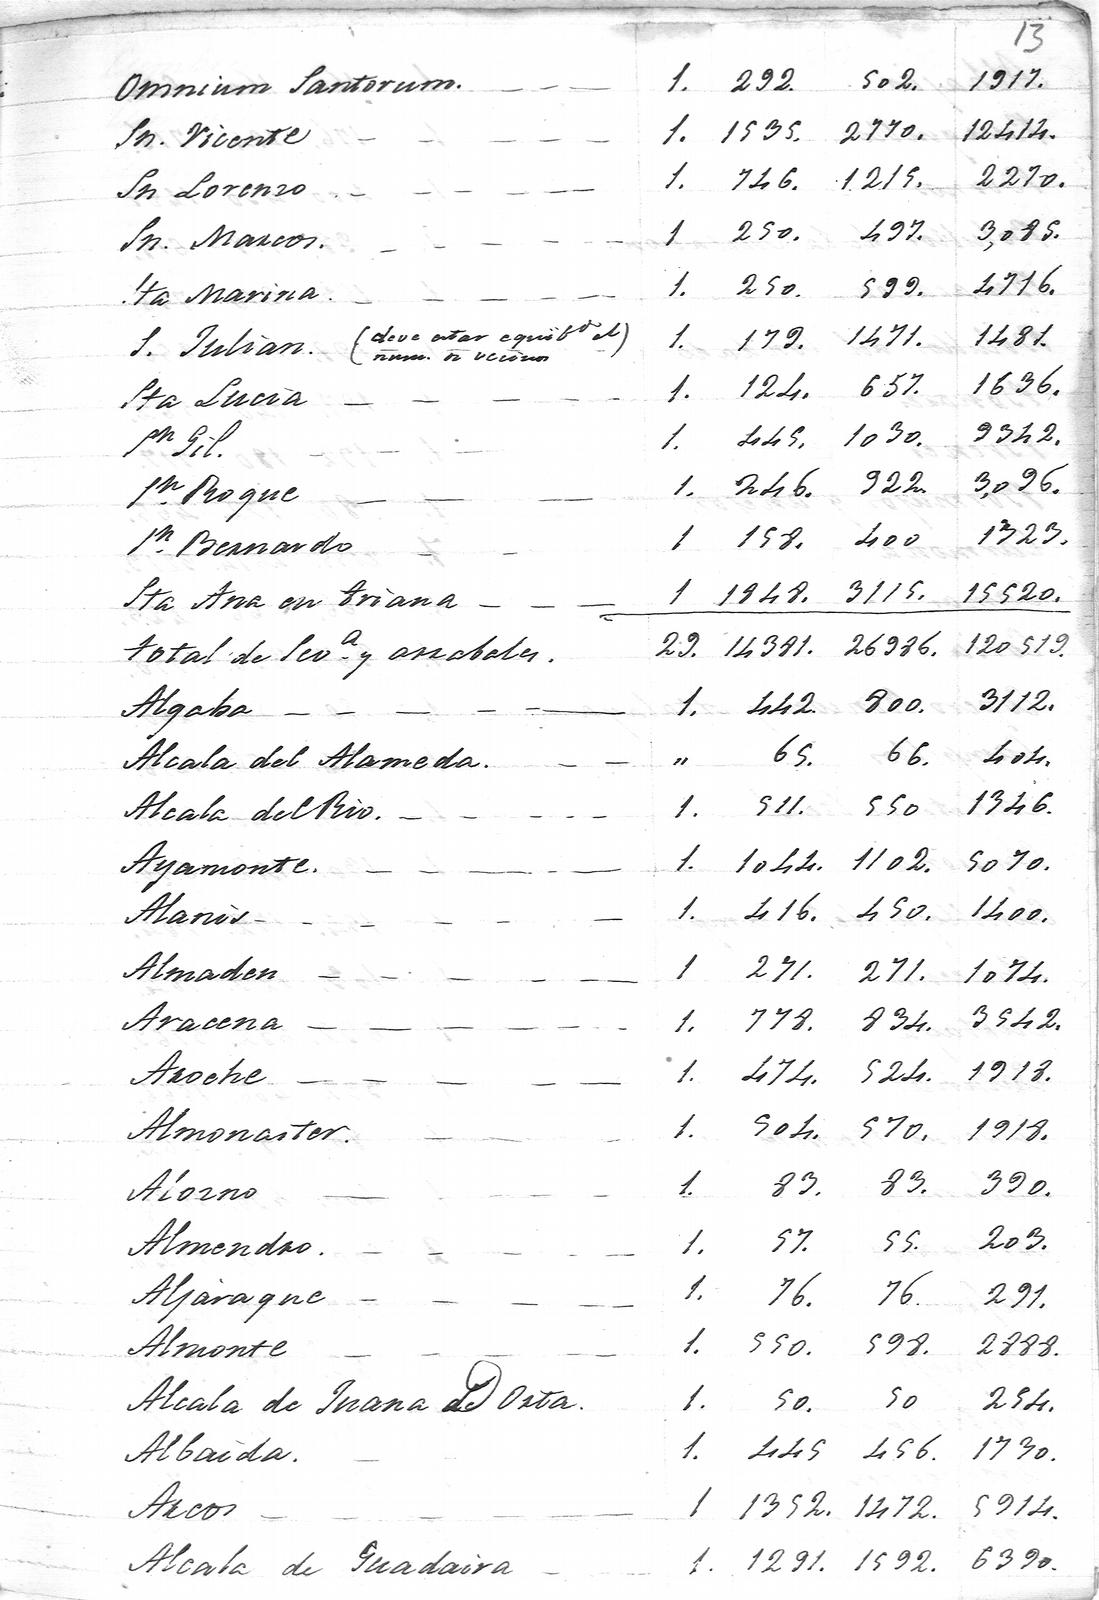 13
Omnium Santorum. 1. 292. 502. 1917.
Sn. Vicente 1. 1535. 2770. 12414.
Sn Lorenzo 1. 746. 1215. 2270.
Sn. Marcos. 1 250. 497. 3,085.
Sta Marina. 1. 250. 599. 4716.
S. Julian. (deve estar equibdo el num. de vecinos) 1. 179. 1471. 1481.
Sta Lucia 1. 124. 657. 1636.
Sn Gil. 1. 445. 1030. 9342.
Sn Roque 1. 246. 922. 3,096.
Sn. Bernardo 1 158. 400 1323.
Sta Ana en triana 1 1848. 3115. 15520.
total de Seva. y arrabales. 29. 14381. 26986. 120519.
Algaba 1. 442. 800. 3112.
Alcala del Alameda. " 65. 66. 404.
Alcala del Rio. 1. 511. 550 1346.
Ayamonte. 1. 1044. 1102. 5070.
Alanis 1. 416. 450. 1400.
Almaden 1 271. 271. 1074.
Aracena 1. 778. 834. 3542.
Aroche 1. 474. 524. 1918.
Almonaster. 1. 504. 570. 1918.
Alosno 1. 83. 83. 390.
Almendro. 1. 57. 55. 203.
Aljaraque 1. 76. 76. 291.
Almonte 1. 550. 598. 2888.
Alcala de Juana de Orta. 1. 50. 50 254.
Albaida. 1. 445 456. 1730.
Arcos 1 1352. 1472. 5914.
Alcala de Guadaira 1. 1291. 1592. 6390.